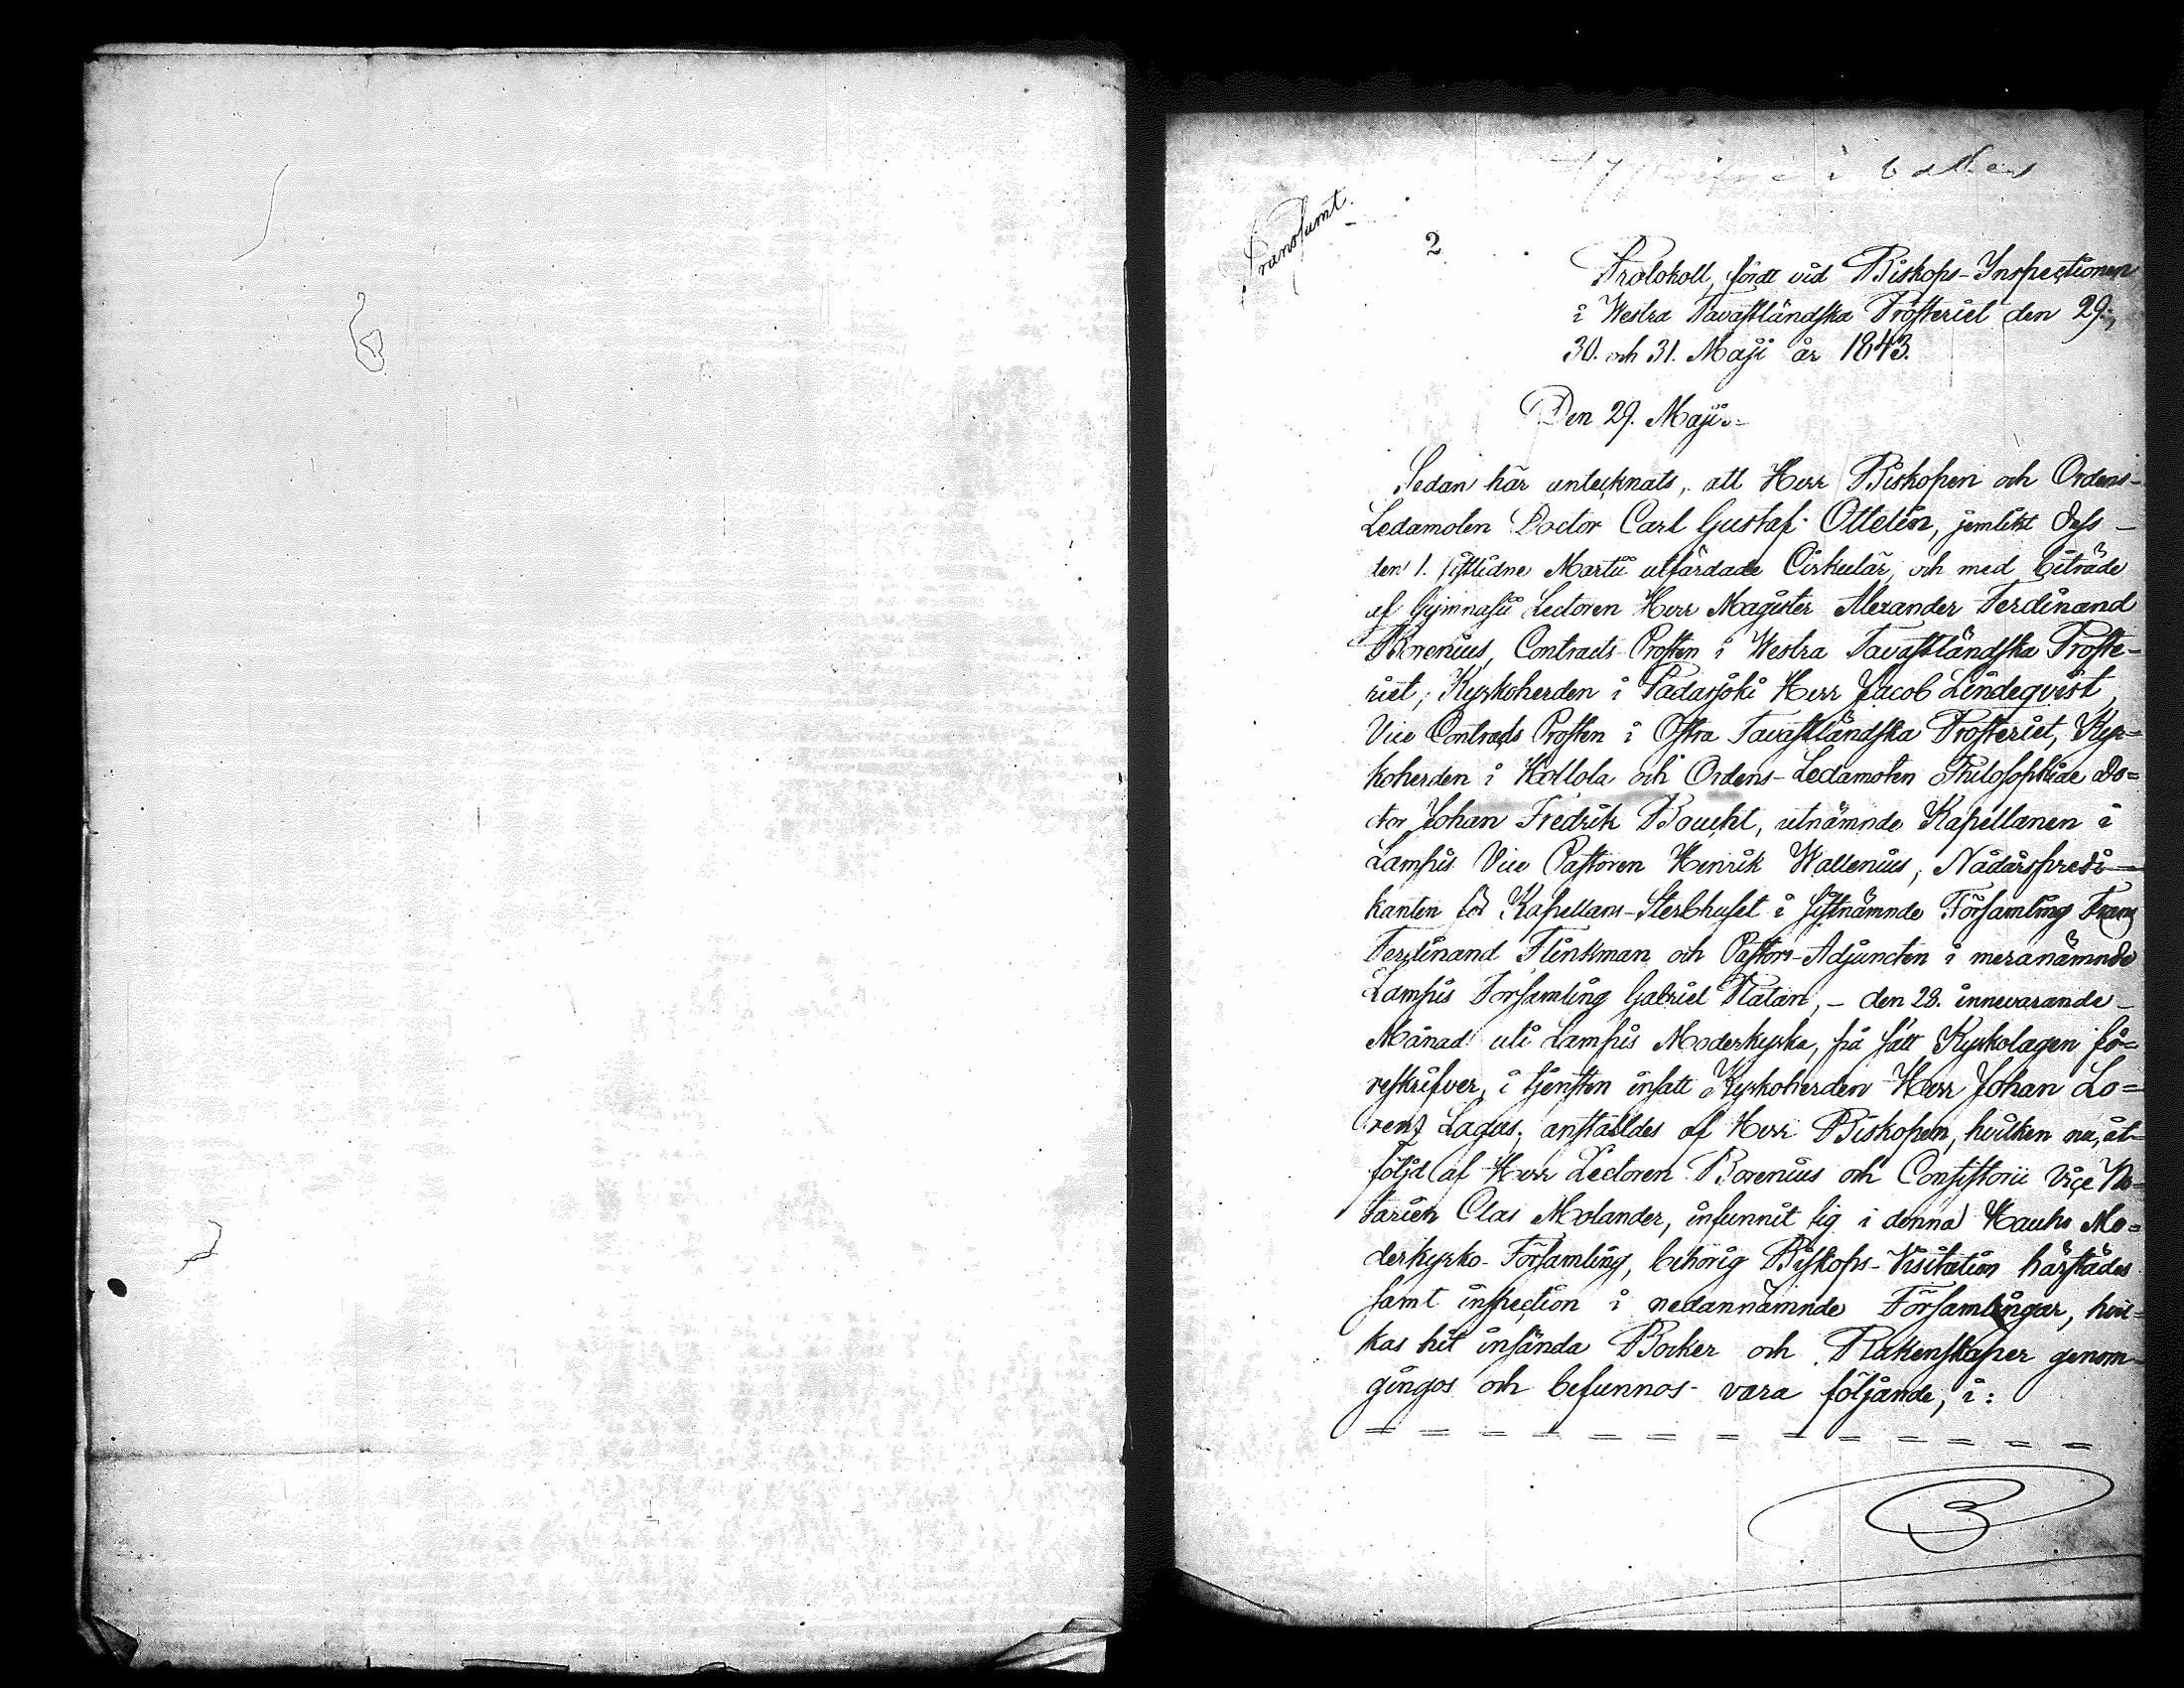 Transsumt.
2
Protokoll, fördt vid Biskops-Inspectionen
i Westra Tavastländska Prosteriet den 29.,
30. och 31. Maji år 1843.
Den 29. Maji.-
Sedan här antecknats, att Herr Biskopen och Ordens-
Ledamoten Doctor Carl Gustaf Ottelin, jemlikt dess
den 1. sistlidne Martii utfärdade Cirkulär, och med biträde
af Gymnasii Lectoren Herr Magister Alexander Ferdinand
Borenius, Contracts Prosten i Westra Tavastländska Proste-
riet, Kyrkoherden i Padasjoki Herr Jacob Lindeqvist,
Vice Contracts Prosten i Östra Tavastländska Prosteriet, Kyr=
koherden i Hollola och Ordens-Ledamoten Philosophiæ Do=
ctor Johan Fredrik Boucht, utnämnde Kapellanen i
Lampis Vice Pastoren Henrik Wallenius, Nådårspredi-
kanten för Kapellans-Sterbhuset i sistnämnde Församling Franz
Ferdinand Flinkman och Pastors-Adjuncten i meranämnde
Lampis Församling Gabriel Platan, - den 28. innevarande
Månad uti Lampis Moderkyrka, på sätt Kyrkolagen fö=
reskrifver, i tjensten insatt Kyrkoherden Herr Johan Lo=
renz Lagus; anställdes af Herr Biskopen, hvilken nu, åt-
följd af Herr Lectoren Borenius och Consistorii Vice No=
tarien Clas Molander, infunnit sig i denna Hauho Mo=
derkyrko-Församling, behörig Biskops-Visitation härstädes
samt inspection i nedannämnde Församlingar, hvil-
kas hit insända Böcker och Räkenskaper genom-
gingos och befunnos vara följande, i: